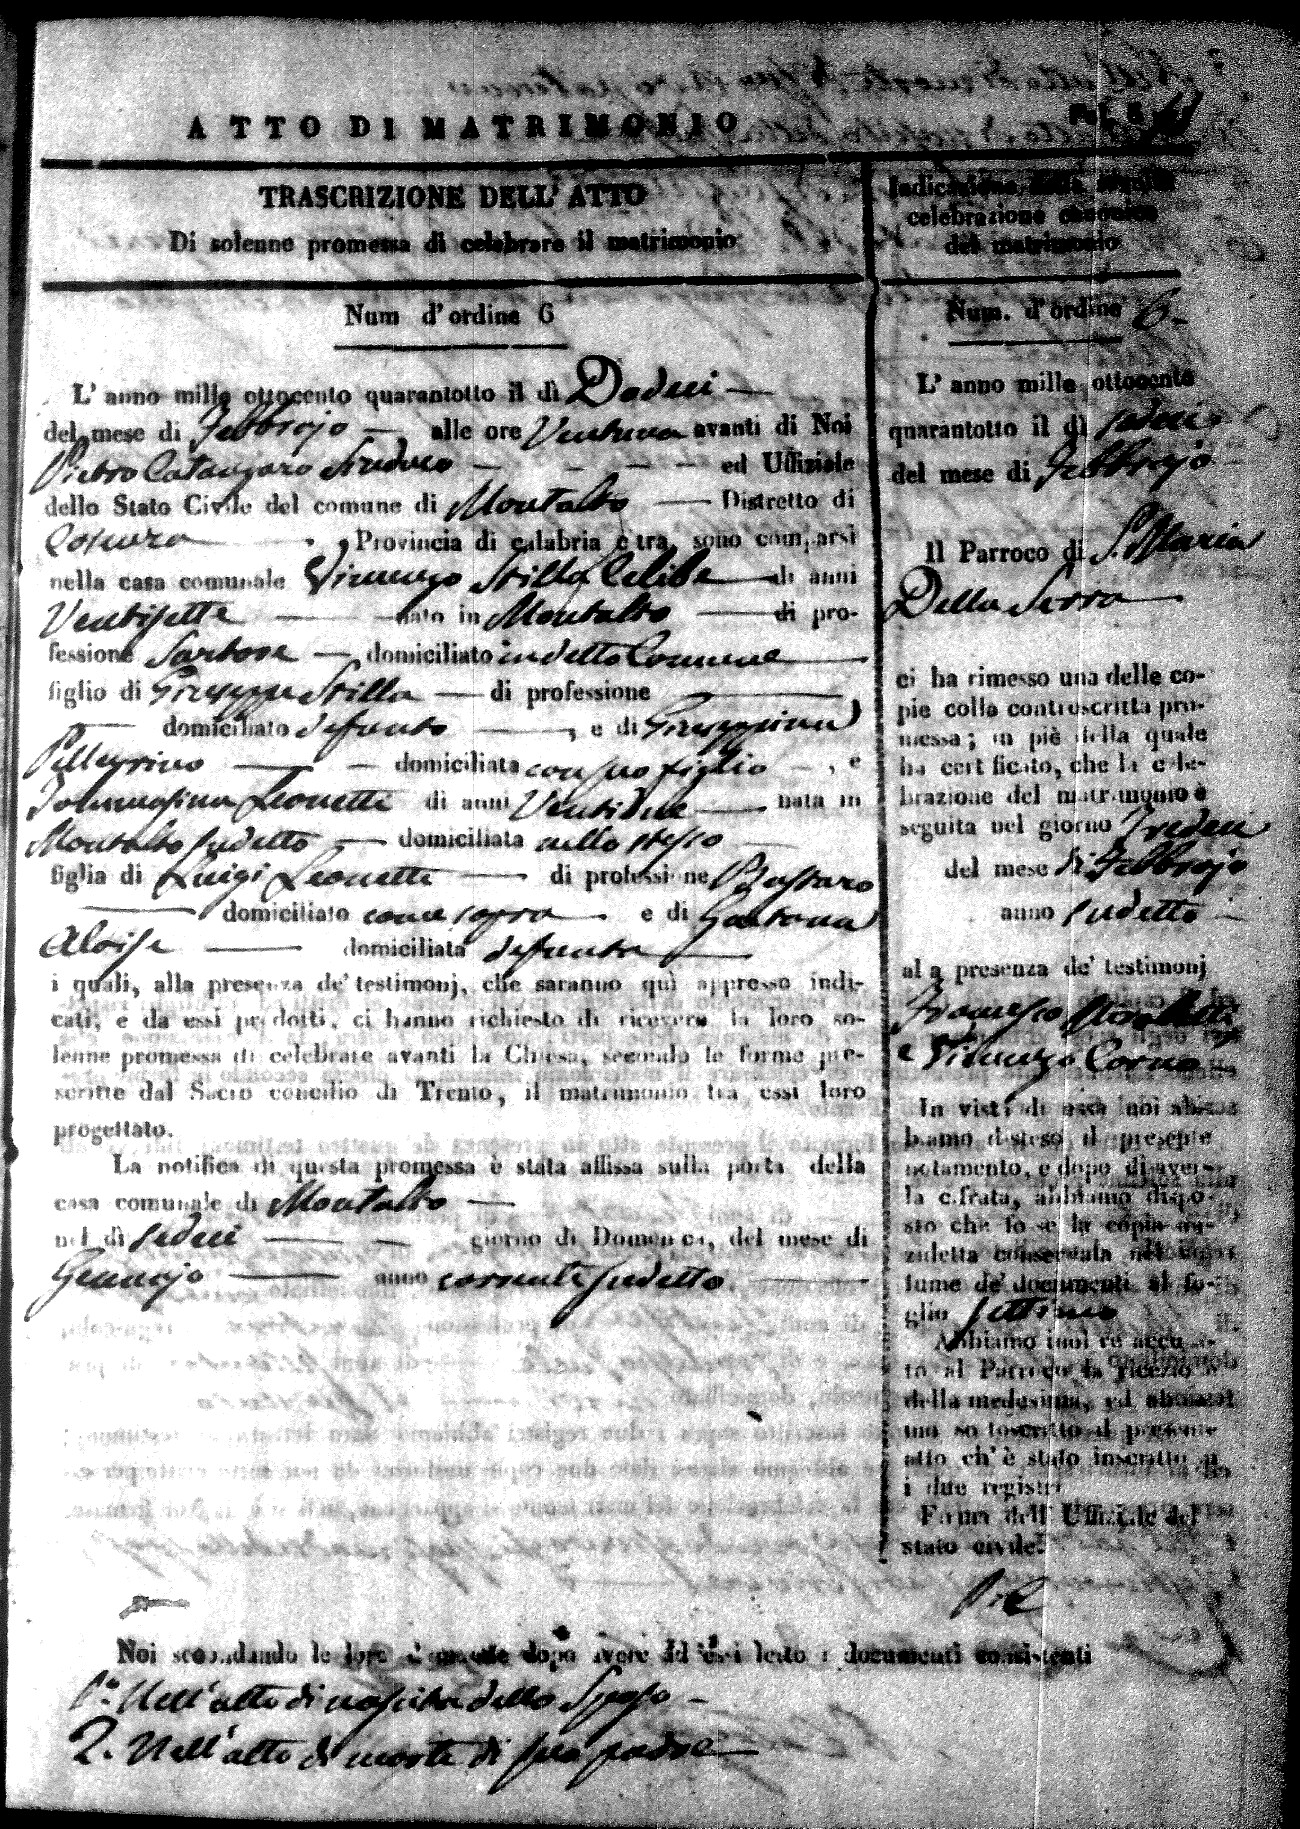 ATTO DI MATRIMONIO
TRASCRIZIONE DELL' ATTO
Di solenne promessa di celebrare il matrimonio
Num d' ordine 6
L' anno mille ottocento quarantotto il dì Dodeci
del mese di Febbrajo alle ore Ventuna avanti di Noi
Pietro Catanzaro Sindaco ed Uffiziale
dello Stato Civile del comune di Montalto Distretto di
Cosenza Provincia di calabria citra, sono comparsi
nella casa comunale Vincenzo Stilla Celibe di anni
Ventisette nato in Montalto di pro-
fessione Sartore domiciliato in detto Comune
figlio di Giuseppe Stilla di professione
domiciliato defunto, e di Giuseppina
Pellegrino domiciliata con suo figlio, e
Tommasina Leonetti di anni Ventidue nata in
Montalto sudetto domiciliata nello stesso
figlia di Luigi Leonetti di professione Bastaro
domiciliato come sopra e di Gaetana
Aloise domiciliata defunta
i quali, alla presenza de' testimonj, che saranno quì appresso indi-
cati, e da essi prodotti, ci hanno richiesto di ricevere la loro so-
lenne promessa di celebrare avanti la Chiesa, secondo le forme pre-
scritte dal Sacro concilio di Trento, il matrimonio tra essi loro
progettato.
La notifica di questa promessa è stata affissa sulla porta della
casa comunale di Montalto
nel dì sedeci giorno di Domenica, del mese di
Gennajo anno corrente sudetto.
Indicazione della seguita
celebrazione canonica
del matrimonio
Num. d' ordine 6
L' anno mille ottocento
quarantotto il dì sedeci
del mese di Febbrajo
Il Parroco di S. Maria
Della Serra
ci ha rimesso una delle co-
pie colla controscritta pro-
messa; in piè della quale
ha certificato, che la cele-
brazione del matrimonio è
seguita nel giorno Tredeci
del mese di Febbrajo
anno sudetto
alla presenza de' testimonj
Francesco
e Vincenzo Corno
In vista di essa noi ab-
biamo disteso il presente
notamento, e dopo di aver-
la cifrata, abbiamo dispo-
sto che fosse la copia an-
zidetta conservata nel vo-
lume de' documenti al fo-
glio settimo
Abbiamo inoltre accu-
to al Parroco la ricezione
della medesima, ed abbia-
mo sottoscritto il presente
atto ch' è stato inscritto su
i due registri
Firma dell' Uffiziale del
stato civile
Noi secondando le loro domande dopo avere ad essi letto i documenti consistenti
1.° Nell' atto di nascita dello Sposo
2. Nell' atto di morte di suo padre